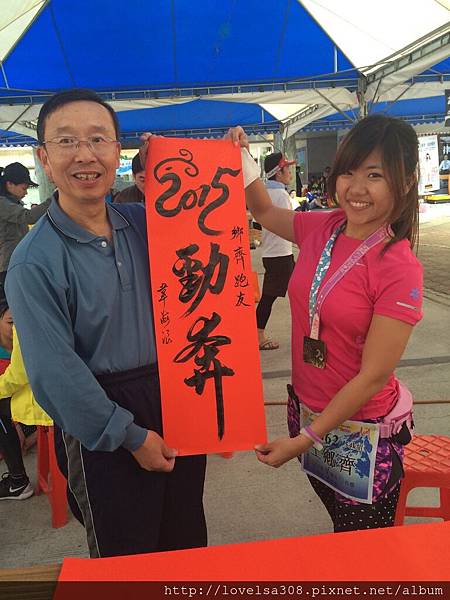 2015
勁奔
鄉齊跑友
62
鄉齊
http://lovelsa308.pixnet.net/album